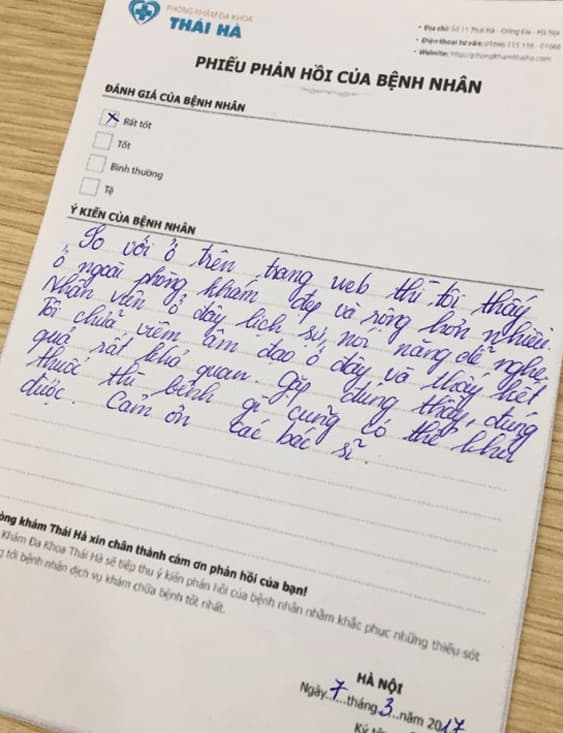 PHÒNG KHÁM ĐA KHOA
THÁI HÀ
• Địa chỉ: Số 11 Thái Hà - Đống Đa - Hà Nội
• Điện thoại tư vấn:
• Website: http://phongkhamthaiha.com
PHIẾU PHẢN HỒI CỦA BỆNH NHÂN
ĐÁNH GIÁ CỦA BỆNH NHÂN
Rất tốt
Tốt
Bình thường
Tệ
Ý KIẾN CỦA BỆNH NHÂN
So với ở trên trang web thì tôi thấy
ở ngoài phòng khám đẹp và rộng hơn nhiều.
Nhân viên ở đây lịch sự, nói năng dễ nghe.
Tôi chữa viêm âm đạo ở đây và thấy kết
quả rất khả quan. Gặp đúng thầy, đúng
thuốc thì bệnh gì cũng có thể khỏi
được. Cảm ơn các bác sĩ.
òng khám Thái Hà xin chân thành cảm ơn phản hồi của bạn!
Khám Đa Khoa Thái Hà sẽ tiếp thu ý kiến phản hồi của bệnh nhân nhằm khắc phục những thiếu sót
g tới bệnh nhân dịch vụ khám chữa bệnh tốt nhất.
HÀ NỘI
Ngày..7...tháng.3..năm 2017